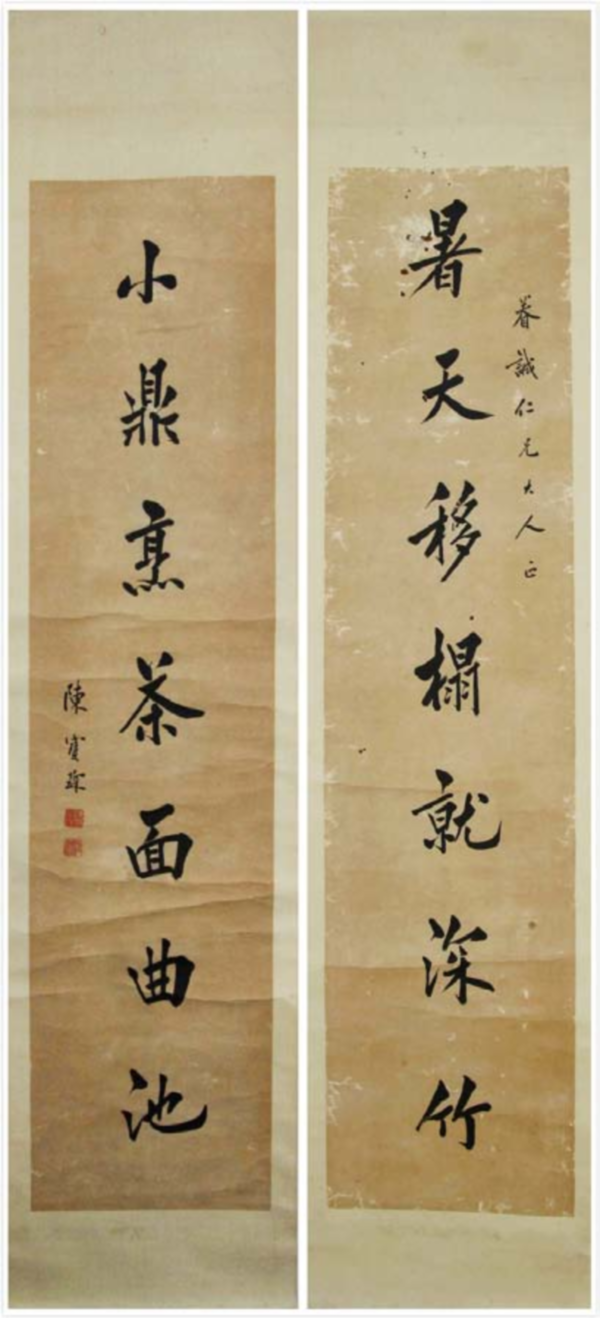 春誠仁兄大人正
暑天移榻就深竹
小鼎烹茶面曲池
陳寶琛